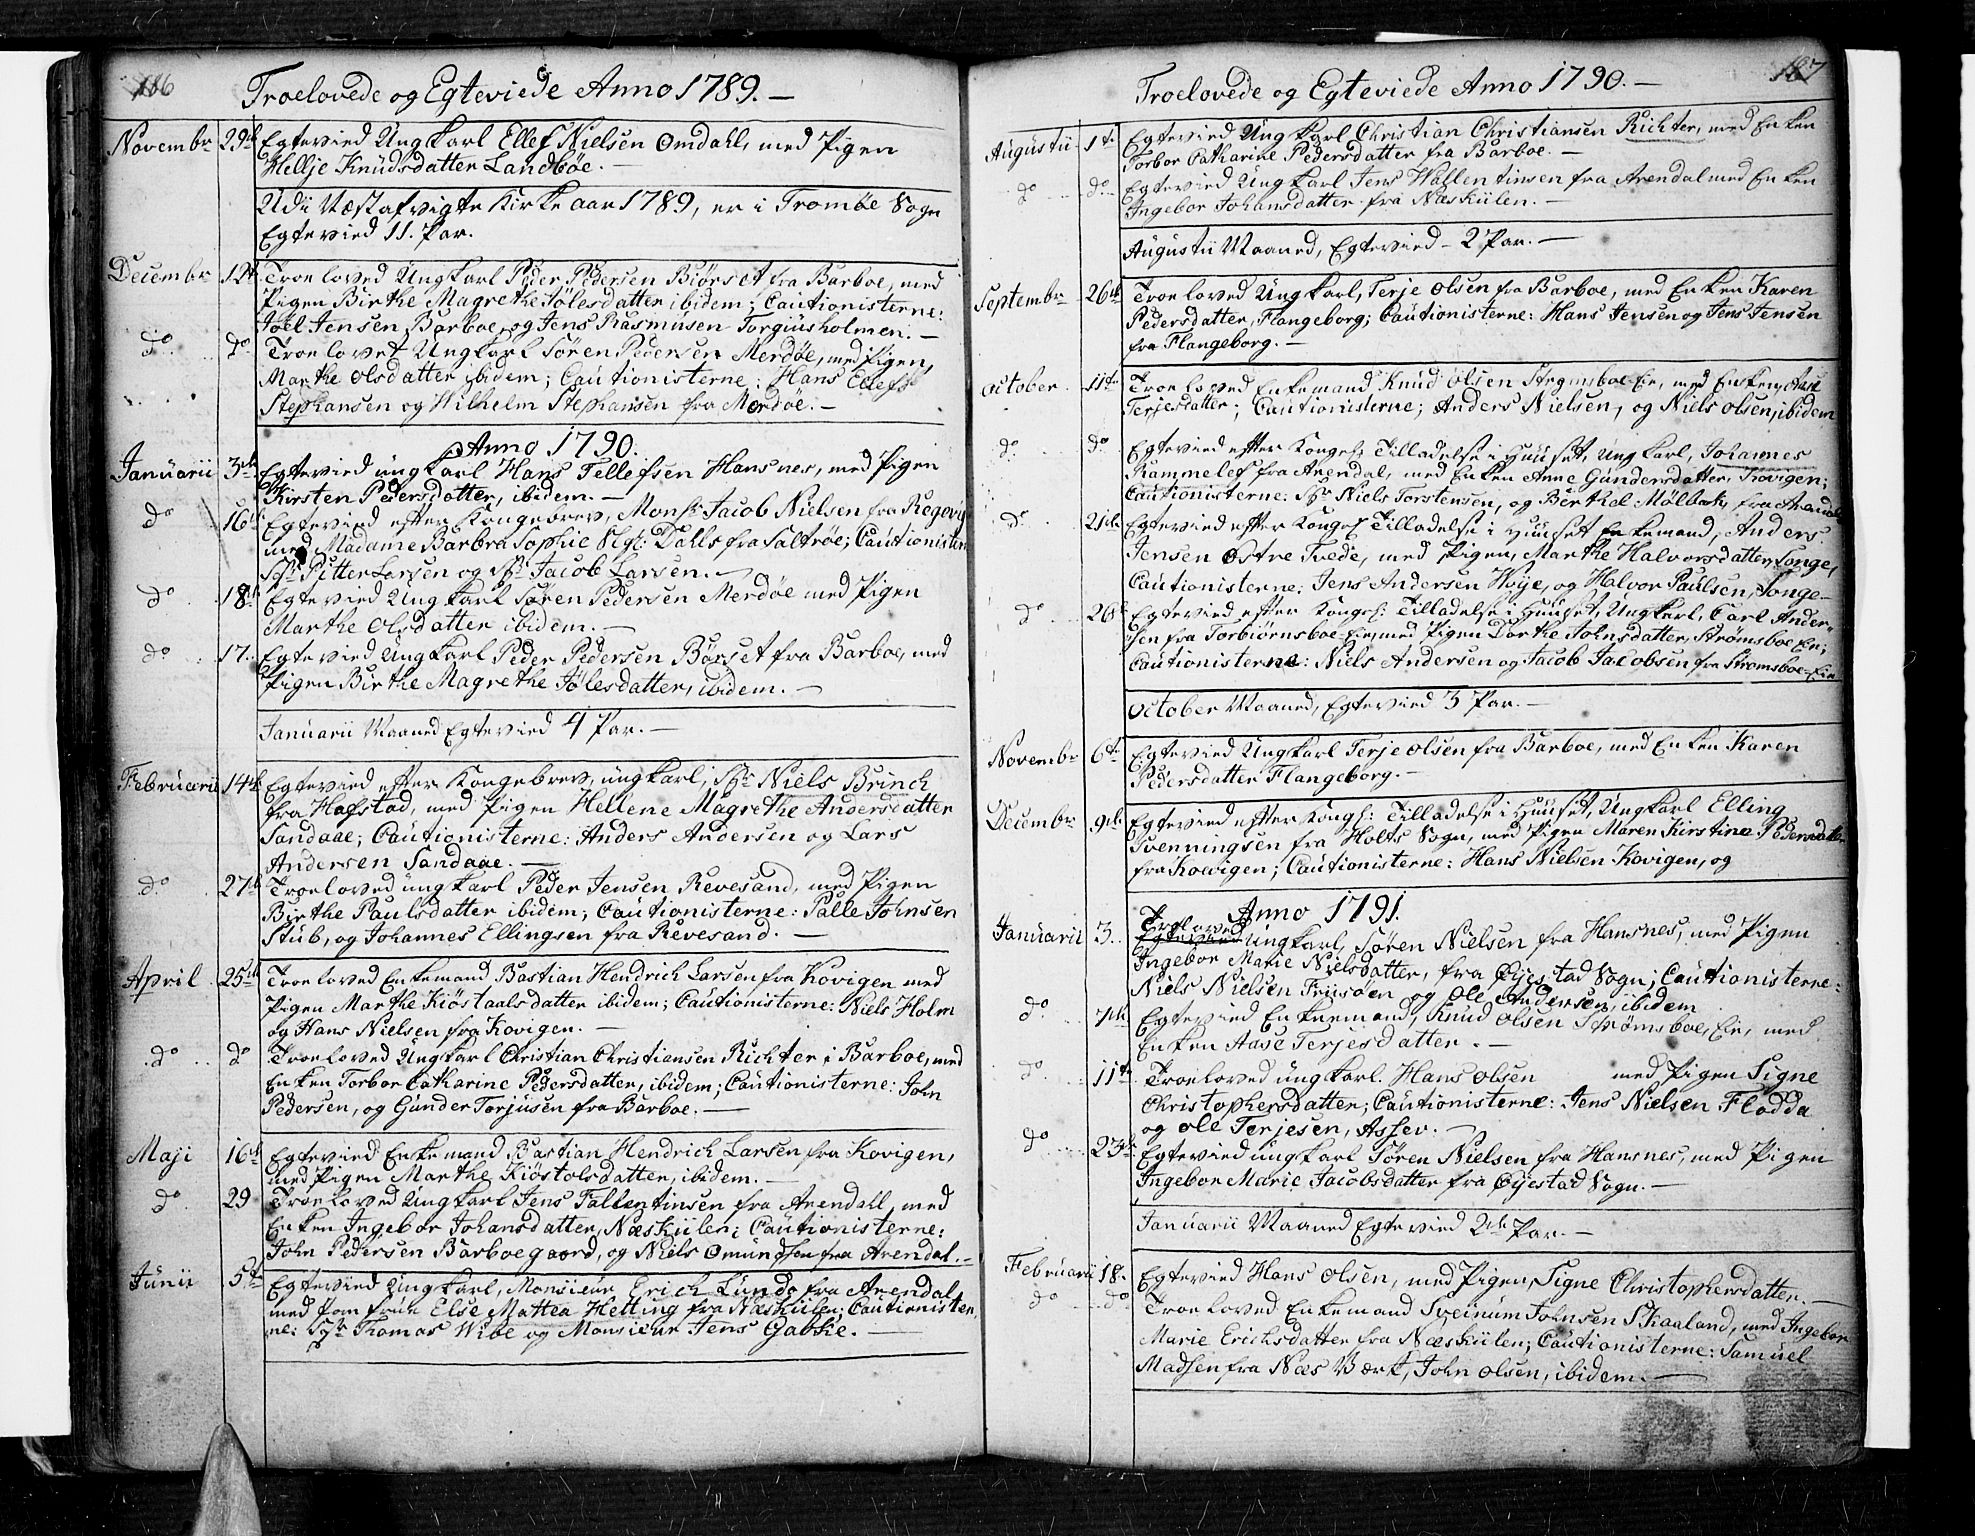 116
Troelovede og Egteviede Anno 1789. —
Novembr 29de Egtevied Ungkarl Ellef Nielsen Omdahl, med Pigen
Hellje Knudsdatter Landbøe. —
Udi Næstafvigte Kirke aar 1789, er i Tromøe Sogn
Egtevied 11. Par.
Decembr 12te Troeloved Ungkarl Peder Pedersen Biørset fra Barboe, med
Pigen Birthe Magrethe Jølesdatter ibidem; Cautionisterne:
Joel Jensen Barboe, og Jens Rasmusen Torgiusholmen. —
do do Troelovet Ungkarl Sören Pedersen Merdøe, med Pigen,
Marthe Olsdatter ibidem; Cautionisterne: Hans Ellefs
Stephansen og Wilhelm Stephansen fra Merdøe. —
Anno 1790.
Januarii 3de Egtevied ungkarl Hans Tellefsen Hansnes, med Pigen
Kirsten Pedersdatter, ibidem. —
do 16de Egtevied efter Kongebrev, Monsr Jacob Nielsen fra Regevig
med Madame Barbra Sophie Slgt: Dahls fra Saltrøe; Cautionister
Sr Pitter Larsen og Sr Jacob Larsen. —
do 18de Egtevied Ungkarl Søren Pedersen Merdøe med Pigen
Marthe Olsdatter ibidem. —
do 17. Egtevied Ungkarl Peder Pedersen Børset fra Barboe, med
Pigen Birthe Magrethe Jølesdatter, ibidem. —
Januarii Maaned Egtevied 4 Par. —
Februarii 14de Egtevied efter Kongebrev, ungkarl, Sr Niels Brinch
fra Hofstad, med Pigen Hellene Magrethe Andersdatter
Sandaae; Cautionisterne: Anders Andersen og Lars
Andersen Sandaae. —
do 27de Troeloved ungkarl Peder Jensen Revesand, med Pigen
Birthe Paulsdatter ibidem; Cautionisterne: Palle Johnsen
Stub, og Johannes Ellingsen fra Revesand. —
April 25de Troeloved Enkemand Bastian Hendrich Larsen fra Kovigen med
Pigen Marthe Kiöstaalsdatter ibidem; Cautionisterne: Niels Holm
og Hans Nielsen fra Kovigen. —
do do Troeloved Ungkarl Christian Christiansen Richter i Barboe, med
Enken Torbor Catharine Pedersdatter, ibidem; Cautionisterne: John
Pedersen, og Gunder Torjusen fra Barboe. —
Maji 16de Egtevied Enkemand Bastian Hendrich Larsen fra Kovigen,
med Pigen Marthe Kiöstolsdatter, ibidem. —
do 29 Troeloved Ungkarl Jens Fallentinsen fra Arendall, med
Enken Ingebor Johansdatter, Næskiilen; Cautionisterne:
John Pedersen Barboegaard, og Niels Omundsen fra Arendal. —
Junii 5te Egtevied Ungkarl, Monsieur Erich Lund fra Arendal,
med Jomfrue Else Mattea Hetting fra Næskiilen; Cautionister,
ne: Sr Thomas Wibe og Monsieur Jens Gabbie. —
167
Troelovede og Egteviede Anno 1790. —
Augustii 1te Egtevied Ungkarl Christian Christiansen Richter, med Enken
Torbor Catharine Pedersdatter fra Barboe. —
do do Egtevied Ungkarl Jens Wallentinsen fra Arendal med Enken
Ingebor Johansdatter fra Næskiilen. —
Augustii Maaned, Egtevied — 2 Par. —
Septembr 26de Troeloved Ungkarl, Terje Olsen fra Barboe, med Enken Karen
Pedersdatter, Flangeborg; Cautionisterne: Hans Jensen og Jens Jensen
fra Flangeborg. —
October 11te Troeloved Enkemand Knud Olsen Strømsboe Eie, med Enken, Aase
Terjesdatter; Cautionisterne; Anders Nielsen, og Niels Olsen, ibidem
do do Egtevied efter Kongel: Tilladelse i Huuset, Ungkarl, Johannes
Rammelef fra Arendal, med Enken Anne Gundersdatter, Kovigen;
Cautionisterne: Sr Niels Torstensen, og Berthel Mølbak, fra Arendal
do 21de Egtevied efter Kongel: Tilladelse i Huuset Enkemand, Anders
Jensen Østre Tvede, med Pigen, Marthe Halvorsdatter, Songe,
Cautionisterne: Jens Andersen Woje, og Halvor Paulsen, Songe —
do 28 Egtevied efter Kongel: Tilladelse i Huuset, Ungkarl, Carl Ander-
sen fra Torbiørnsboe Eie, med Pigen Dorthe Johnsdatter, Strømsboe Eie;
Cautionisterne: Niels Andersen og Jacob Jacobsen fra Strømsboe-Eie
October Maaned, Egtevied 3 Par. —
Novembr 6te Egtevied Ungkarl Terje Olsen fra Barboe, med Enken Karen
Pedersdatter Flangeborg. —
Decembr 9de Egtevied efter Kongl: Tilladelse i Huuset, Ungkarl Elling
Svenningsen fra Holts Sogn, med Pigen Maren Kirstine Pedersdatter
fra Kowigen; Cautionisterne: Hans Nielsen Kovigen, og
Anno 1791.
Troeloved
Januarii 3. Egtevied Ungkarl, Søren Nielsen fra Hansnes, med Pigen
Ingebor Marie Nielsdatter, fra Øyestad Sogn; Cautionisterne:
Niels Nielsen Friisøen og Ole Andersen, ibidem
do 7de Egtevied Enkemand, Knud Olsen Strømsboe, Eie, med
Enken Aase Terjesdatter. —
do 11te Troeloved ungkarl. Hans Olsen med Pigen Signe
Christophersdatter; Cautionisterne: Jens Nielsen Flødda
og Ole Terjesen, Assev. —
do 23de Egtevied ungkarl Søren Nielsen fra Hansnes, med Pigen
Ingebor Marie Jacobsdatter fra Øyestad Sogn. —
Januarii Maaned Egtevied 2de Par. —
Februarii 18. Egtevied Hans Olsen, med Pigen, Signe Christophersdatter. —
do do Troeloved Enkemand Sveinum Johnsen Skaaland, med Ingebor
Marie Erichsdatter fra Næskiilen; Cautionisterne: Samuel
Madsen fra Næs Værk, John Olsen, ibidem. —